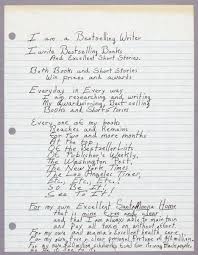 I am a Bestselling Writer
I write Bestselling Books
And Excellent Short Stories.
Both Books and Short Stories
Win prizes and awards
Everyday in Every way
I am researching and writing
My Award winning, Best selling
Books and Short stories
Every one of my books
Reaches and Remains
For two and more months
At the top
Of the Bestseller Lists
Publisher's Weekly,
The Washington Post,
The New York Times,
The Los Angeles Times,
So Be It!
See To It!
For my own Excellent Santa Monica Home
that is mine
and that I am always able to maintain
and Pay all taxes on without effort.
For my own and mama's Excellent health care,
For my own